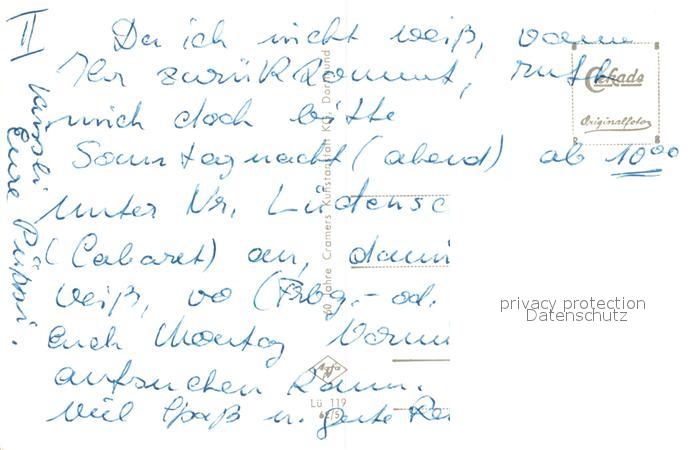 II
Da ich nicht weiß, wann
Ihr zurückkommt, ruft
mich doch bitte
Sonntagnacht (abend) ab 10⁰⁰
unter Nr. Lüdensc
(Cabaret) an, dami
weiß, wo (Frbg.- od.
Euch Montag Vormi
aufsuchen kann.
Viel Spaß u. gute Re
Eure Püppi.
Cekade
Originalfoto
60 Jahre Cramers Kunstanstalt KG, Dortmund
Agfa
Lü 119
privacy protection
Datenschutz